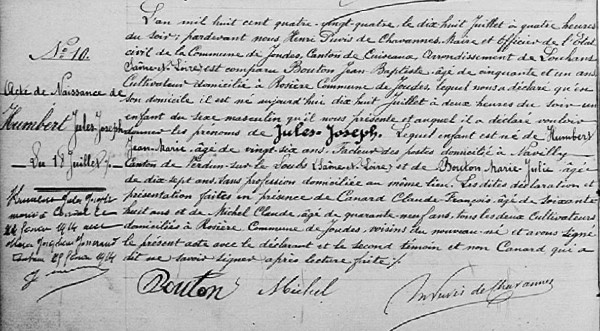 L'an mil huit cent quatre-vingt-quatre, le dix huit Juillet à quatre heures
du soir; pardevant nous Henri Puvis de Chavannes, Maire et Officier de l'Etat
civil de la Commune de Joudes, Canton de Cuiseaux, Arrondissement de Louhans
(Saône-&-Loire) est comparu Bouton Jean Baptiste, âgé de cinquante et un ans
Cultivateur domicilié à Rosière Commune de Joudes, lequel nous a déclaré qu'en
son domicile il est né aujourd'hui dix huit Juillet à deux heures du soir un
enfant du sexe masculin qu'il nous présente et auquel il a déclaré vouloir
donner les prénoms de Jules-Joseph. Lequel enfant est né de Humbert
Jean-Marie, âgé de vingt six ans, Facteur des postes domicilié à Navilly
Canton de Verdun-sur-le Doubs (Saône-&-Loire) et de Bouton Marie-Julie âgée
de dix sept ans, sans profession domiciliée au même lieu. Lesdites déclaration et
présentation faites en présence de Canard Claude-François, âgé de soixante
huit ans et de Michel Claude, âgé de quarante neuf ans, tous les deux Cultivateurs
domiciliés à Rosière Commune de Joudes, voisins du nouveau-né et avons signé
le présent acte avec le déclarant et le second témoin et non Canard qui a
dit ne savoir signer après lecture faite.
Bouton Michel H Puvis de Chavannes
No 10.
Acte de Naissance de
Humbert Jules-Joseph
Du 18 Juillet
Humbert Jules Joseph
marié à
février 1914 avec
février 1914